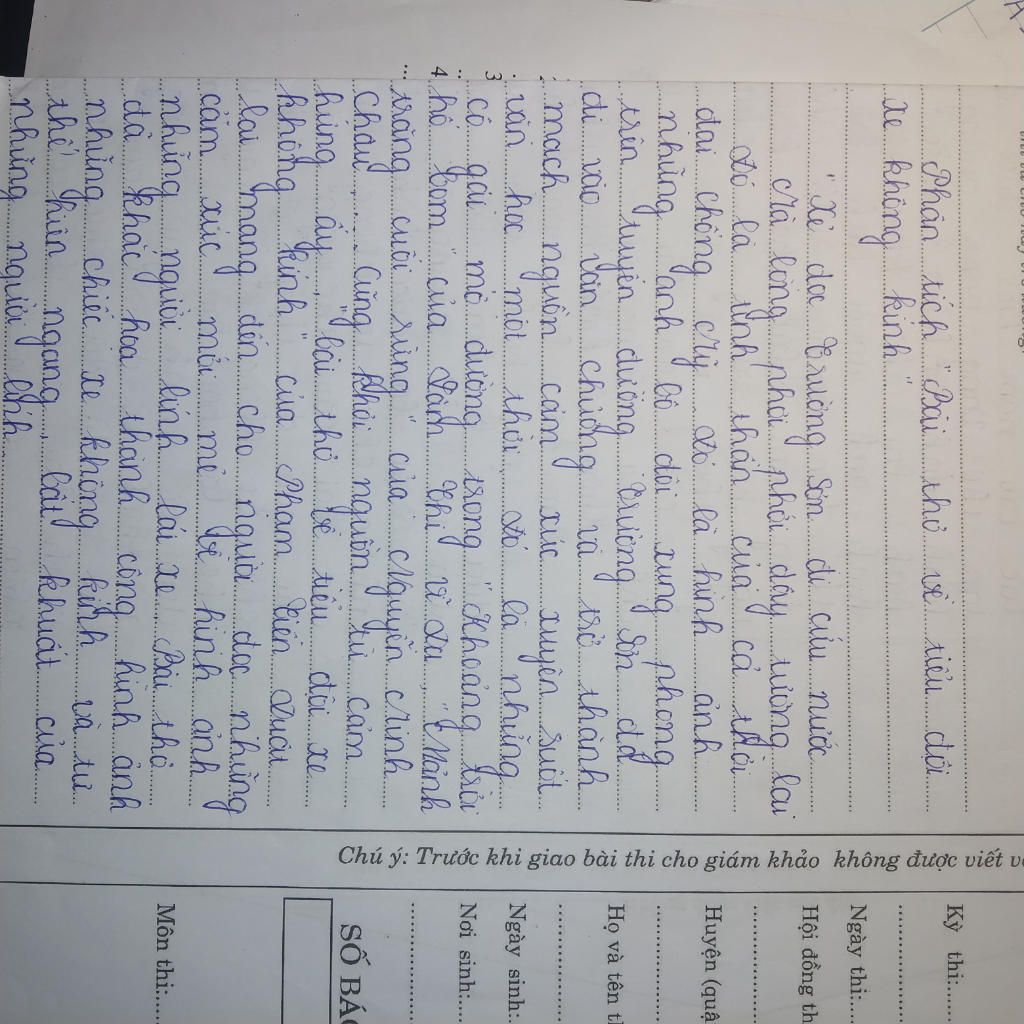 Phân tích "Bài thơ về tiểu đội
xe không kính"
"Xẻ dọc Trường Sơn đi cứu nước
Mà lòng phơi phới dậy tương lai
Đó là tinh thần của cả thời
đại chống Mỹ. Đó là hình ảnh
những anh bộ đội xung phong
trên tuyến đường Trường Sơn đã
đi vào văn chương và trở thành
mạch nguồn cảm xúc xuyên suốt
văn học một thời. Đó là những
cô gái mở đường trong "Khoảng trời
hố bom" của Lâm Thị Mĩ Dạ, "Mảnh
trăng cuối rừng" của Nguyễn Minh
Châu,... Cũng khởi nguồn từ cảm
hứng ấy, "bài thơ về tiểu đội xe
không kính" của Phạm Tiến Duật
lại mang đến cho người đọc những
cảm xúc mới mẻ về hình ảnh
những người lính lái xe. Bài thơ
đã khắc họa thành công hình ảnh
những chiếc xe không kính và tư
thế hiên ngang, bất khuất của
những người lính
Chú ý: Trước khi giao bài thi cho giám khảo không được viết
Kỳ thi:
Ngày thi:
Hội đồng
Huyện (quậ
Họ và tên
Ngày sinh:
Nơi sinh:
SỐ BÁ
Môn thi:
3
4